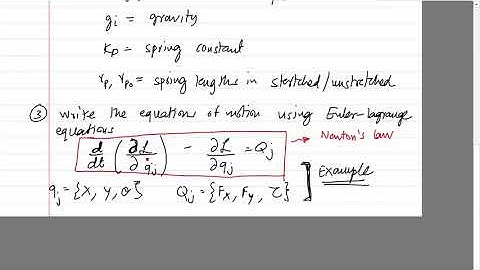 gi = gravity
Kp = spring constant
rp, rpo = spring lengths in stretched/unstretched
③ Write the equations of motion using Euler-Lagrange
equations
d/dt (∂L/∂q̇j) - ∂L/∂qj = Qj → Newton's law
qj = {x, y, θ} Qj = {Fx, Fy, τ} ] Example